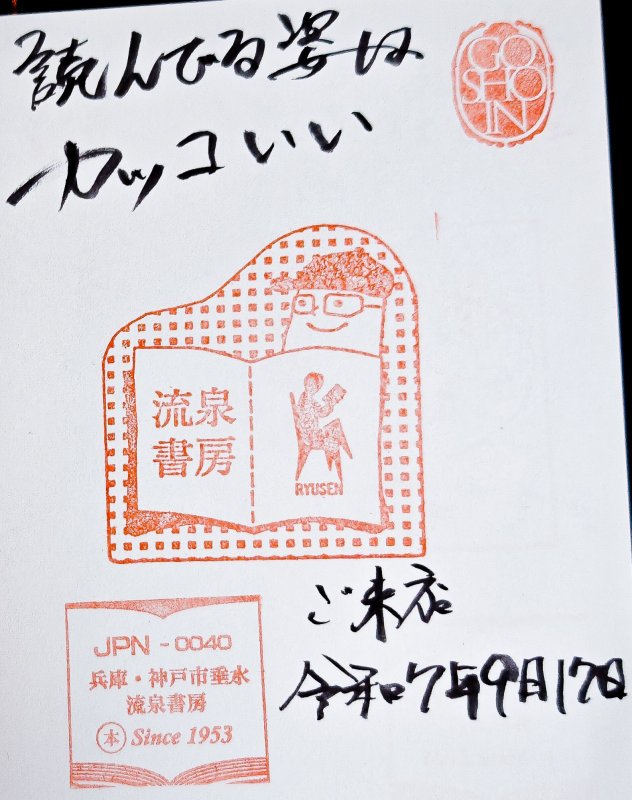 読んでる姿は
カッコいい
GO
SHO
IN
流泉
書房
RYUSEN
ご来店
令和7年9月17日
JPN - 0040
兵庫・神戸市垂水
流泉書房
本 Since 1953